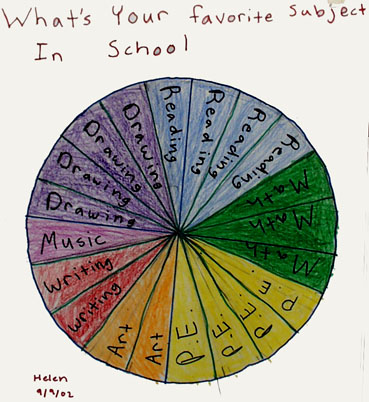 What's Your favorite Subject
In School
Reading
Reading
Reading
Reading
Math
Math
Math
P.E.
P.E.
P.E.
P.E.
Art
Art
Writing
Writing
Music
Drawing
Drawing
Drawing
Drawing
Helen
9/9/02